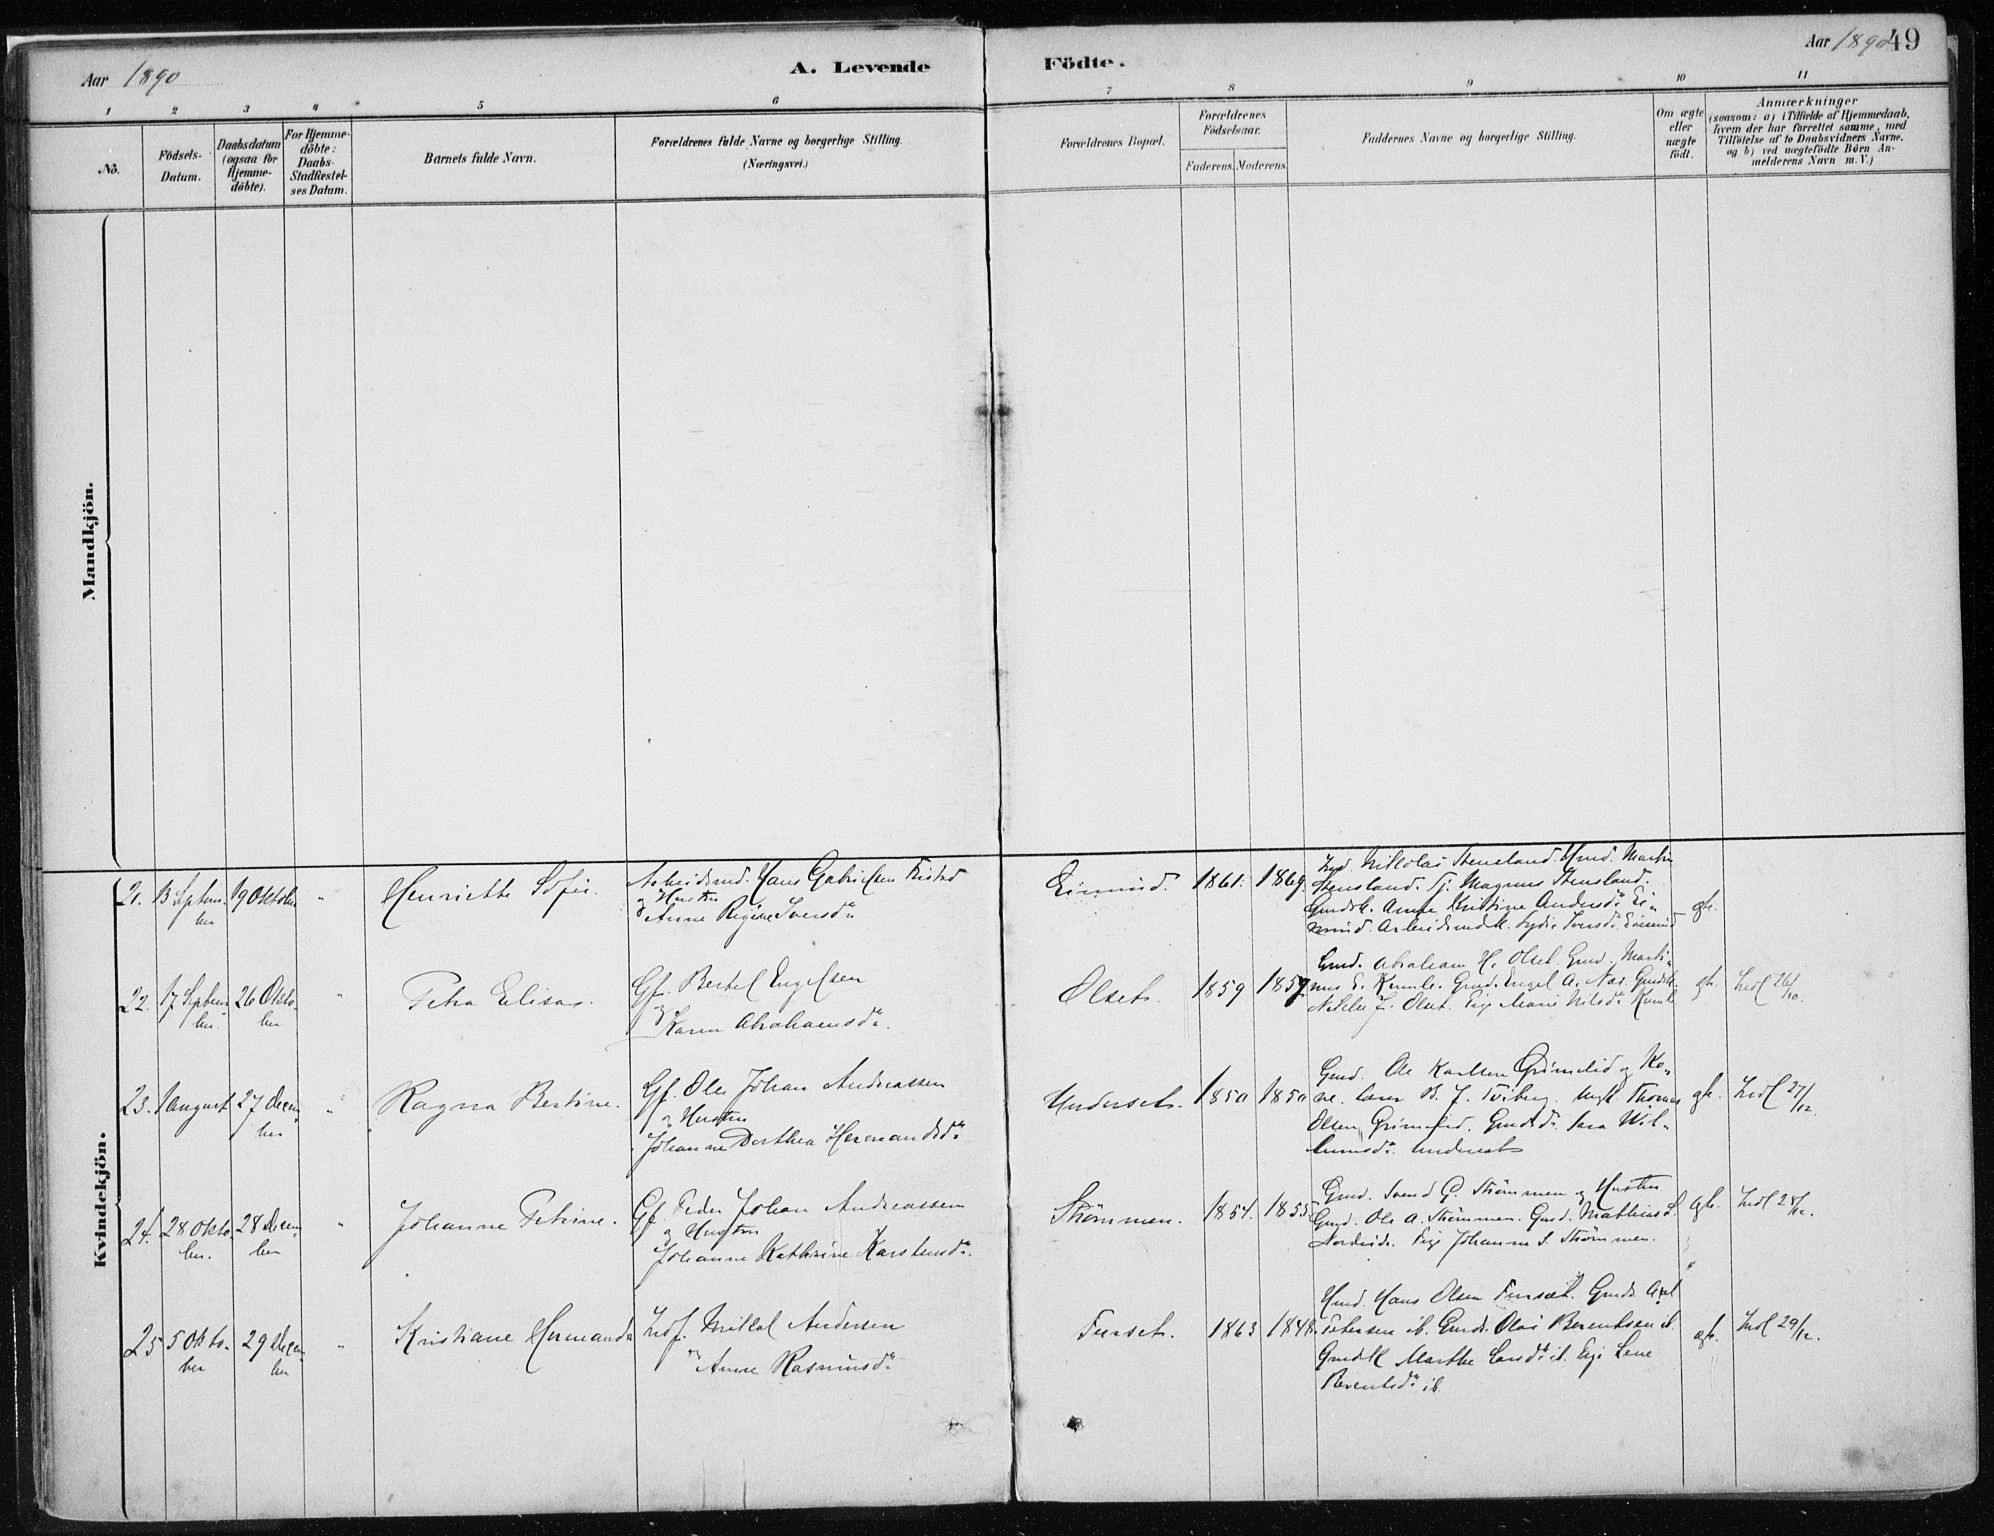 Aar 1890
A. Levende
Födte.
Aar 1890
49
1 2 3 4 5 6 7 8 9 10 11
No.
Födsels-
Datum.
Daabsdatum
(ogsaa for
Hjemme-
döbte).
For Hjemme-
döbte:
Daabs-
Stadfæstel-
ses Datum.
Barnets fulde Navn.
Forældrenes fulde Navne og borgerlige Stilling.
(Næringsvei.)
Forældrenes Bopæl.
Forældrenes
Födselsaar.
Faderens. Moderens.
Faddernes Navne og borgerlige Stilling.
Om ægte
eller
uægte
födt.
Anmærkninger
(saasom: a) i Tilfælde af Hjemmedaab,
hvem der har forrettet samme, med
Tilföielse af to Daabsvidners Navne.
og b) ved uægtefödte Börn An-
melderens Navn m. V.)
Mandkjön.
Kvindekjön.
21. 13 Septem-
ber
19 Oktober
"
Henriette Sofie.
Arbeidsmd. Hans Gabrielsen
og Hustru
Anne Regine Iversdr.
Eimind.
1861. 1869.
Nikolai Stensland. Martin
Stensland. Magnus Stensland.
Anne Kristine Andersdr. Ei-
mind. Eimind
gte.
22. 17 Septem-
ber.
26 Okto-
ber
"
Petra Elisa.
Gf. Bertel Engelsen
og
Karen Abrahamsdr.
Olset.
1859 1857
Gmd. Abraham H. Olset. Gmd. Marti-
nus E. Gmd. Engel A. Næs.
J. Olset. Pige Marie Nilsdr.
gte.
Indl 26/10.
23. 1 August
27 Decem-
ber
"
Ragna Bertine.
Gf. Ole Johan Andreassen
og Hustru
Johanne Dorthea Hermandsdr.
Underset.
1850 1850
Gmd. Ole Karlsen Grimelid og Ko-
ne. B. J. Thomas
Olsen Grimelid. Wil-
Underset
gte.
Indl 27/12.
24. 28 Okto-
ber.
28 Decem-
ber
"
Johanne Petrine.
Gf. Peder Johan Andreassen
og Hustru
Johanne Kathrine Karstensdr.
Strømmen.
1854. 1855.
Gmd. Svend G. Strømmen og Hustru
Gmd. Ole A. Strømmen. Gmd. Mathias S.
Pige Johanne S. Strømmen.
gte.
Indl 28/12.
25 5 Okto-
ber
29 Decem-
ber
"
Kristiane Hermanda
Mikkal Andersen
og
Anne Rasmusdr.
Furset.
1863 1848
Hans Olsen Furset. Axel
Petersen ib. Olai Berentsen ib.
Marthe Larsdr. ib. Pige Lene
Berentsdr. ib.
gte.
Indl 29/12.